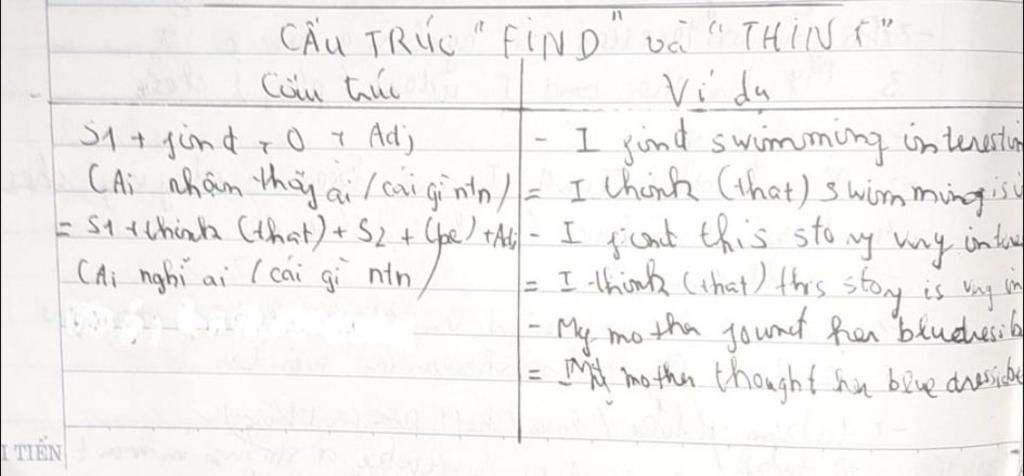 CẤU TRÚC "FIND" và "THINK"
Cấu trúc
Ví dụ
S1 + find + O + Adj
(Ai nhận thấy ai / cái gì ntn)
= S1 + think (that) + S2 + (be) + Adj
(Ai nghĩ ai / cái gì ntn)
- I find swimming interestin
= I think (that) swimming is i
- I find this story very inte
= I think (that) this story is very in
- My mother found her blue dress b
= My mother thought her blue dress
I TIẾN